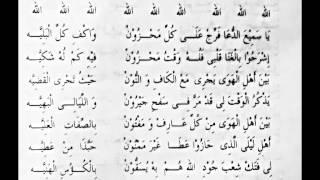 الله الله الله الله الله الله الله
يَا سَمِيْعَ الدُّعَا فَرِّجْ عَلَى كُلِّ مَحْزُوْنْ وَاكْفِ كُلَّ الْبَلِيَّهْ
اِشْرَحُوْا بِالْغِنَا قَلْبِيْ فَلَهْ وَقْتُ مَحْزُوْنْ فِيْهِ كَمْ لَهْ شَكِيَّهْ
بَيْنَ أَهْلِ الْهَوَى يَجْرِيْ مَعَ الْكَافِ وَالنُّوْنْ حَيْثُ تَجْرِي الْقَضِيَّهْ
يَذْكُرُ الْوَقْتَ لِيْ قَدْ مَرَّ فِيْ سَفْحِ جَيْرُوْنْ وَاللَّيَالِي الْبَهِيَّهْ
بَيْنَ أَهْلِ الْهَوَى مِنْ كُلِّ عَارِفْ وَمَفْتُوْنْ بِالصِّفَاتِ الْعَلِيَّهْ
أَهْلِ لَيْلَى الَّذِيْ حَازُوْا عَطَا غَيْرَ مَمْنُوْنْ حَبَّذَا مِنْ عَطِيَّهْ
لِيْ فَتَكْ شِعْبَ جُوْدِ الله هُمْ بِهْ يُسْقَوْنْ بِالْكُؤُوْسِ الْهَنِيَّهْ